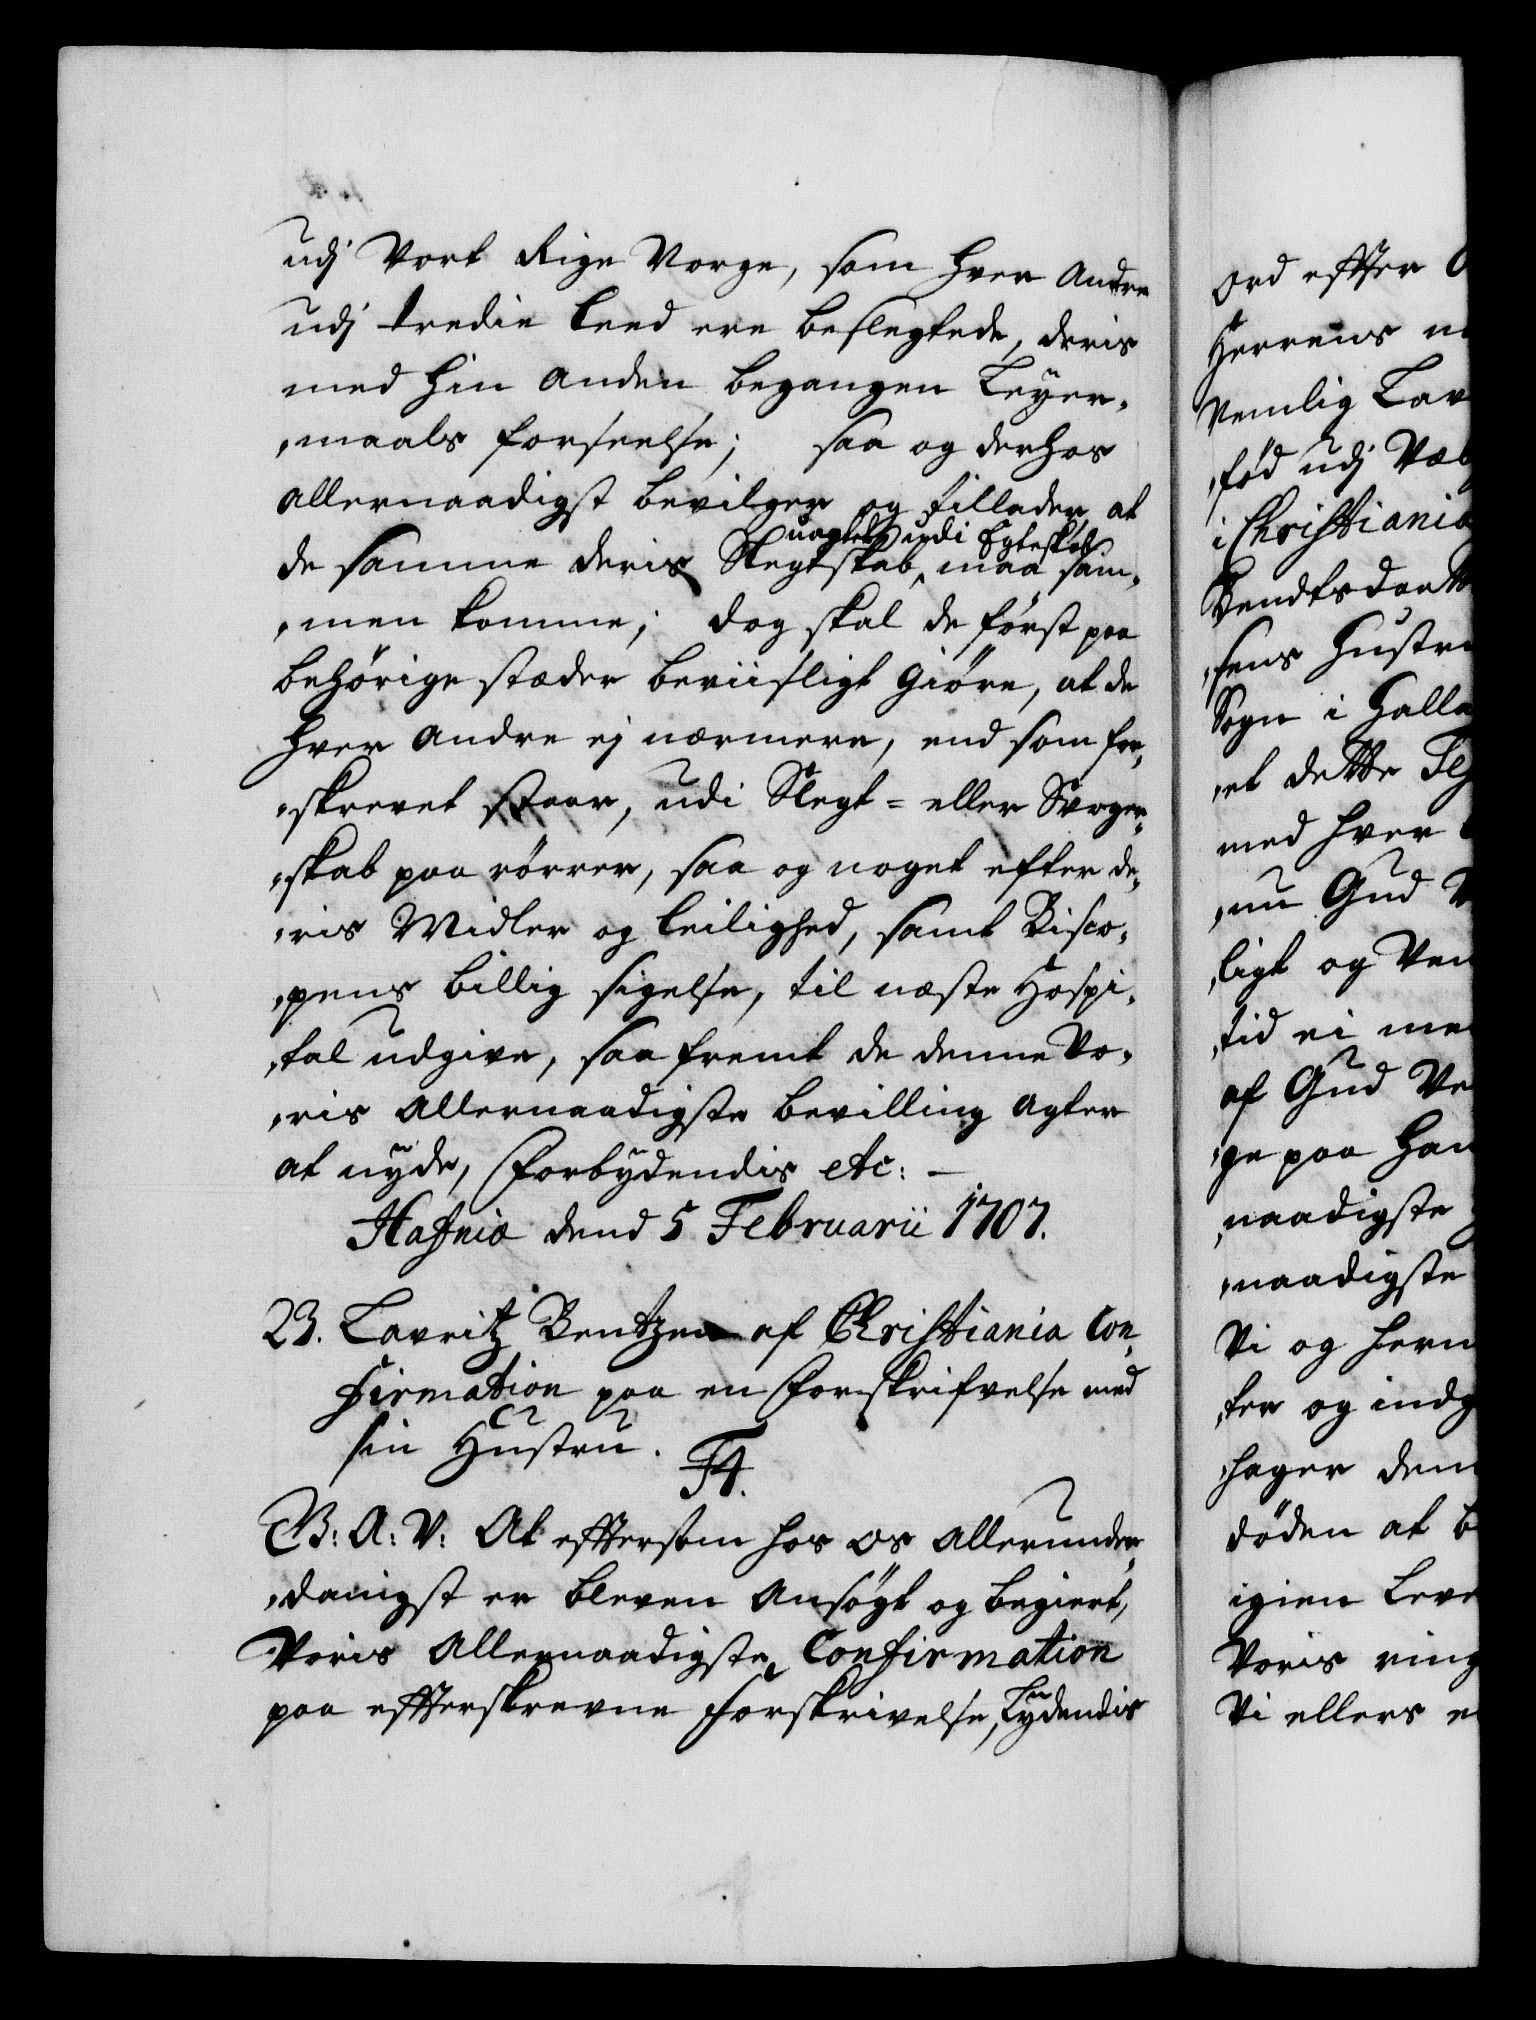 udj Vort Rige Norge, som hver Andre
udj tredie Leed ere beslegtede, deris
med hin anden begangen Leÿer-
maals forseelse; saa og derhos
allernaadigst bevilger og tillader, at
uagtet udi Egteskab
de samme deris Slegtskab, maa sam-
men komme; dog skal de først paa
behørige stæder beviisligt Giøre, at de
hver Andre ej nærmere, end som for-
skrevet staar, udi Slegt= eller Svoger-
skab paa rörrer, saa og noget efter de-
ris Midler og leilighed, samt Bisco-
pens billig sigelse, til næste Hospi-
tal udgive, saafremt de denne Vo-
ris Allernaadigste bevilling agter
at nÿde, Forbÿdendis etc: —
Hafniæ dend 5 Februarii 1707.
23. Lavritz Bentzen af Christiania Con-
firmation paa en Forskrifvelse med
sin Hustru. F4.
G: A: V: At effterson hos os allerunder-
danigst er bleven Ansøgt og begiert,
Voris Allernaadigste Confirmation
paa effterskrevne Forskrivelse, Lÿdendis
Ord effter O
Herrens n
Nemlig Lav
fød udj Næ
i Christiania
Bendtsdaatt
sens Hustru
Sogn i Halla
et dette
med hver
nu Gud
ligt og Ven
tid ei me
af Gud Ve
ge paa Han
naadigste
naadigste
Vi og hern
ter og indg
hager dem
døden at b
igien Leve
Voris ring
Vi ellers e